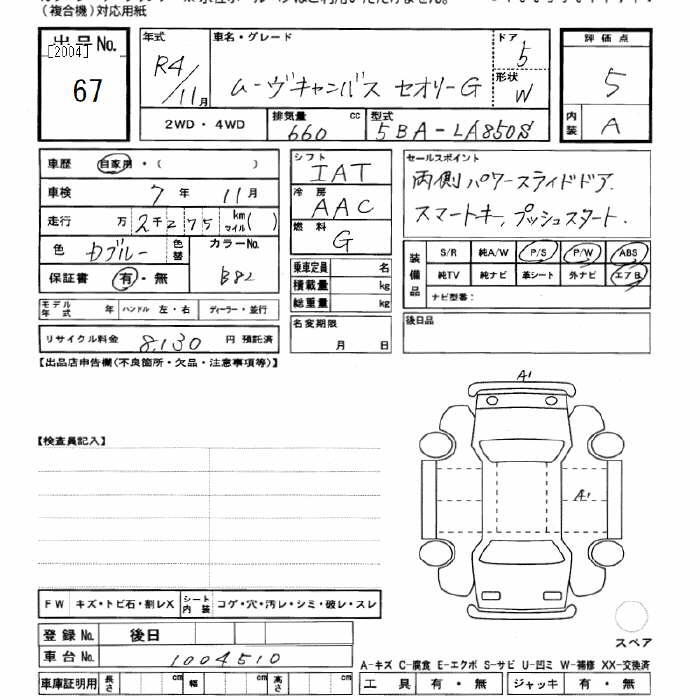 （複合機）対応用紙
出品No. [2004] 67
年式 R4/11月
車名・グレード ムーヴキャンバス セオリーG
ドア 5
形状 W
評価点 5
内装 A
2WD・4WD
排気量 660 cc
型式 5BA-LA850S
車歴 自家用・( )
車検 7年 11月
走行 万2千275 km マイル( )
色 Dブルー 色替
カラーNo. B82
保証書 有・無
モデル年式 年 ハンドル 左・右 ディーラー・並行
リサイクル料金 8,130 円 預託済
シフト IAT
冷房 AAC
燃料 G
乗車定員 名
積載量 kg
総重量 kg
名変期限 月 日
セールスポイント
両側パワースライドドア
スマートキー,プッシュスタート.
装備品 S/R 純A/W P/S P/W ABS
純TV 純ナビ 革シート 外ナビ エアB
ナビ型番:
後日品
【出品店申告欄(不良箇所・欠品・注意事項等)】
【検査員記入】
A1
A1
スペア
FW キズ・トビ石・割レX シート内装 コゲ・穴・汚レ・シミ・破レ・スレ
登録No. 後日
車台No. 1004510
車庫証明用 長さ cm 幅 cm 高さ cm
A-キズ C-腐食 E-エクボ S-サビ U-凹ミ W-補修 XX-交換済
工具 有・無 ジャッキ 有・無